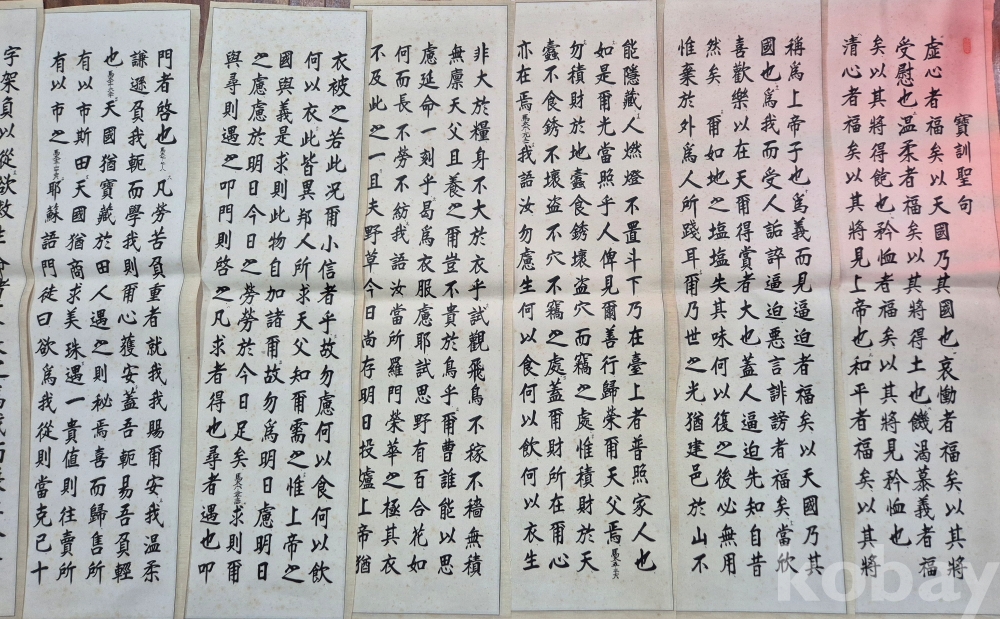 寶訓聖句
虛心者福矣以天國乃其國也哀慟者福矣以其將
受慰也温柔者福矣以其將得土也饑渴慕義者福
矣以其將得飽也矜恤者福矣以其將見矜恤也
清心者福矣以其將見上帝也和平者福矣以其將
稱爲上帝子也爲義而見逼迫者福矣以天國乃其
國也爲我而受人詬誶逼迫惡言誹謗者福矣當欣
喜歡樂以在天爾得賞者大也蓋人逼迫先知自昔
然矣 爾如地之塩塩失其味何以復之後必無用
惟棄於外爲人所踐耳爾乃世之光猶建邑於山不
能隱藏人燃燈不置斗下乃在臺上者普照家人也
如是爾光當照乎人俾見爾善行歸榮爾天父焉
勿積財於地蠹食銹壞盜穴而竊之處惟積財於天
蠹不食銹不壞盜不穴不竊之處蓋爾財所在爾心
亦在焉 我語汝勿慮生何以食何以飲何以衣生
非大於糧身不大於衣乎試觀飛鳥不稼不穡無積
無廪天父且養之爾豈不貴於鳥乎爾曹誰能以思
慮延命一刻乎曷爲衣服慮耶試思野有百合花如
何而長不勞不紡我語汝當所羅門榮華之極其衣
不及此之一且夫野草今日尚存明日投爐上帝猶
衣被之若此況爾小信者乎故勿慮何以食何以飲
何以衣此皆異邦人所求天父知爾需之惟上帝之
國與義是求則此物自加諸爾故勿爲明日慮明日
之慮慮於明日今日之勞勞於今日足矣 求則爾
與尋則遇之叩門則啓之凡求者得也尋者遇也叩
門者啓也 凡勞苦負重者就我我賜爾安我温柔
謙遜負我軛而學我則爾心獲安蓋吾軛易吾負輕
也 天國猶寶藏於田人遇之則秘焉喜而歸售所
有以市斯田天國猶商求美珠遇一貴值則往賣所
有以市之 耶穌語門徒曰欲爲我從則當克己十
字架負以從欲救生
kobay